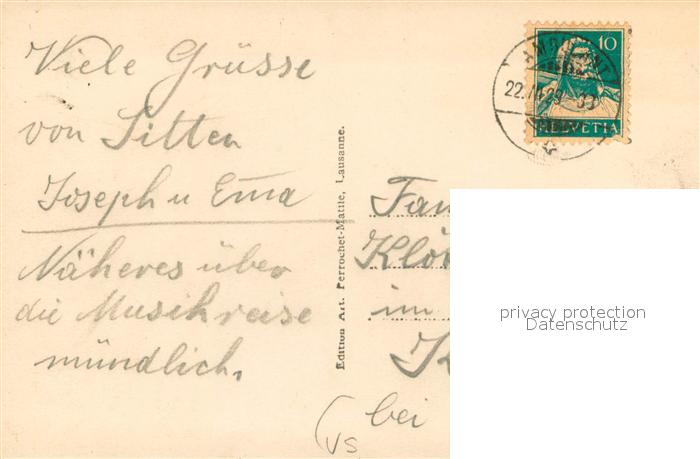 Viele Grüsse
von Sitten
Joseph u Ema
Näheres über
die Musikreise
mündlich.
Edition Art. Perrochet-Matile, Lausanne.
10
22.
HELVETIA
Fam
Klö
im
K
bei
(VS
privacy protection
Datenschutz